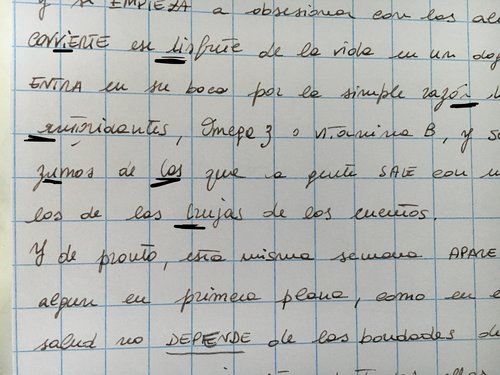 Y se EMPIEZA a obsesionar con los al
CONVIERTE ese disfrute de la vida en un dog
ENTRA en su boca por la simple razón
antioxidantes, Omega 3 o vitamina B, y s
zumos de los que la gente SALE con u
los de las brujas de los cuentos.
Y de pronto, esta misma semana APARE
alguien en primera plana, como en e
salud no DEPENDE de las bondades d